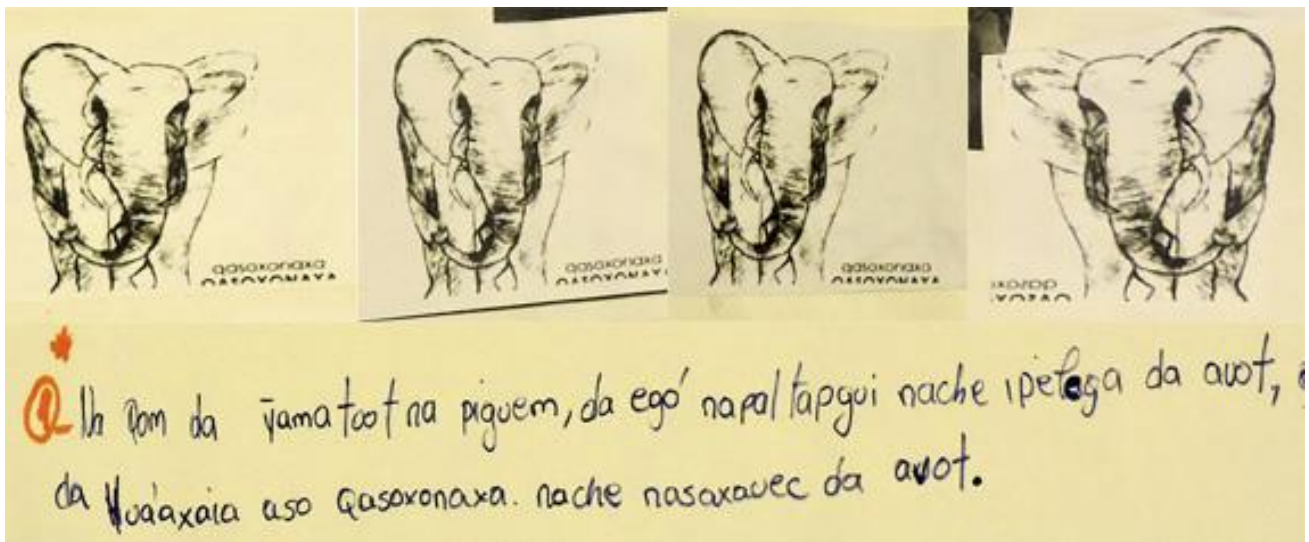 qasoxonaxa
QASOXONAXA
qasoxonaxa
QASOXONAXA
qasoxonaxa
QASOXONAXA
da yamatoot na piguem, da egó napaltapgui nache ipelaga da avot,
da aso qasoxonaxa. nache nasaxavec da avot.